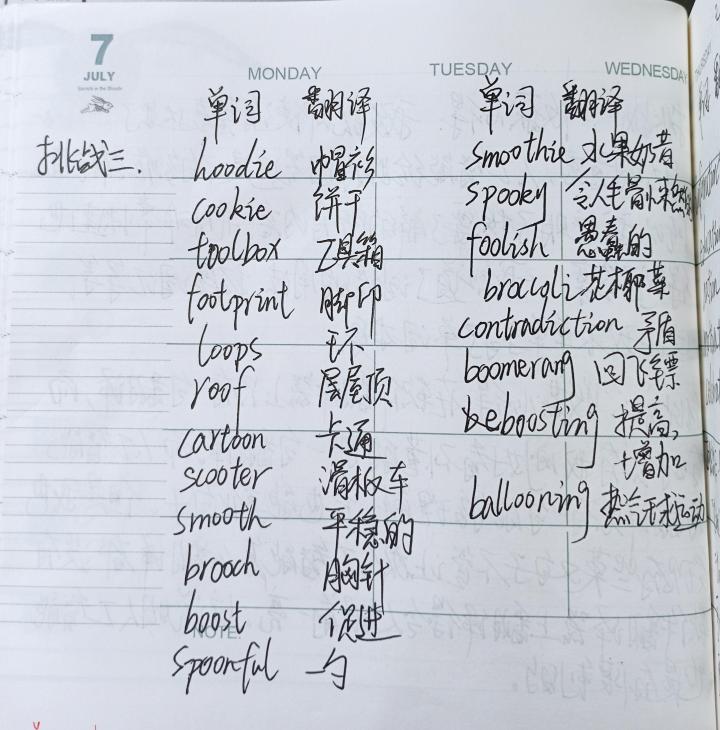 7
JULY
MONDAY
TUESDAY
WEDNESDAY
单词 翻译
单词 翻译
挑战三.
hoodie 帽衫
cookie 饼干
toolbox 工具箱
footprint 脚印
loops 环
roof 层屋顶
cartoon 卡通
scooter 滑板车
smooth 平稳的
brooch 胸针
boost 促进
NOTE:
spoonful 一勺
smoothie 水果奶昔
spooky 令人毛骨悚然
foolish 愚蠢的
broccoli 花椰菜
contradiction 矛盾
boomerang 回飞镖
beboosting 提高,
增加
ballooning 热气球运动